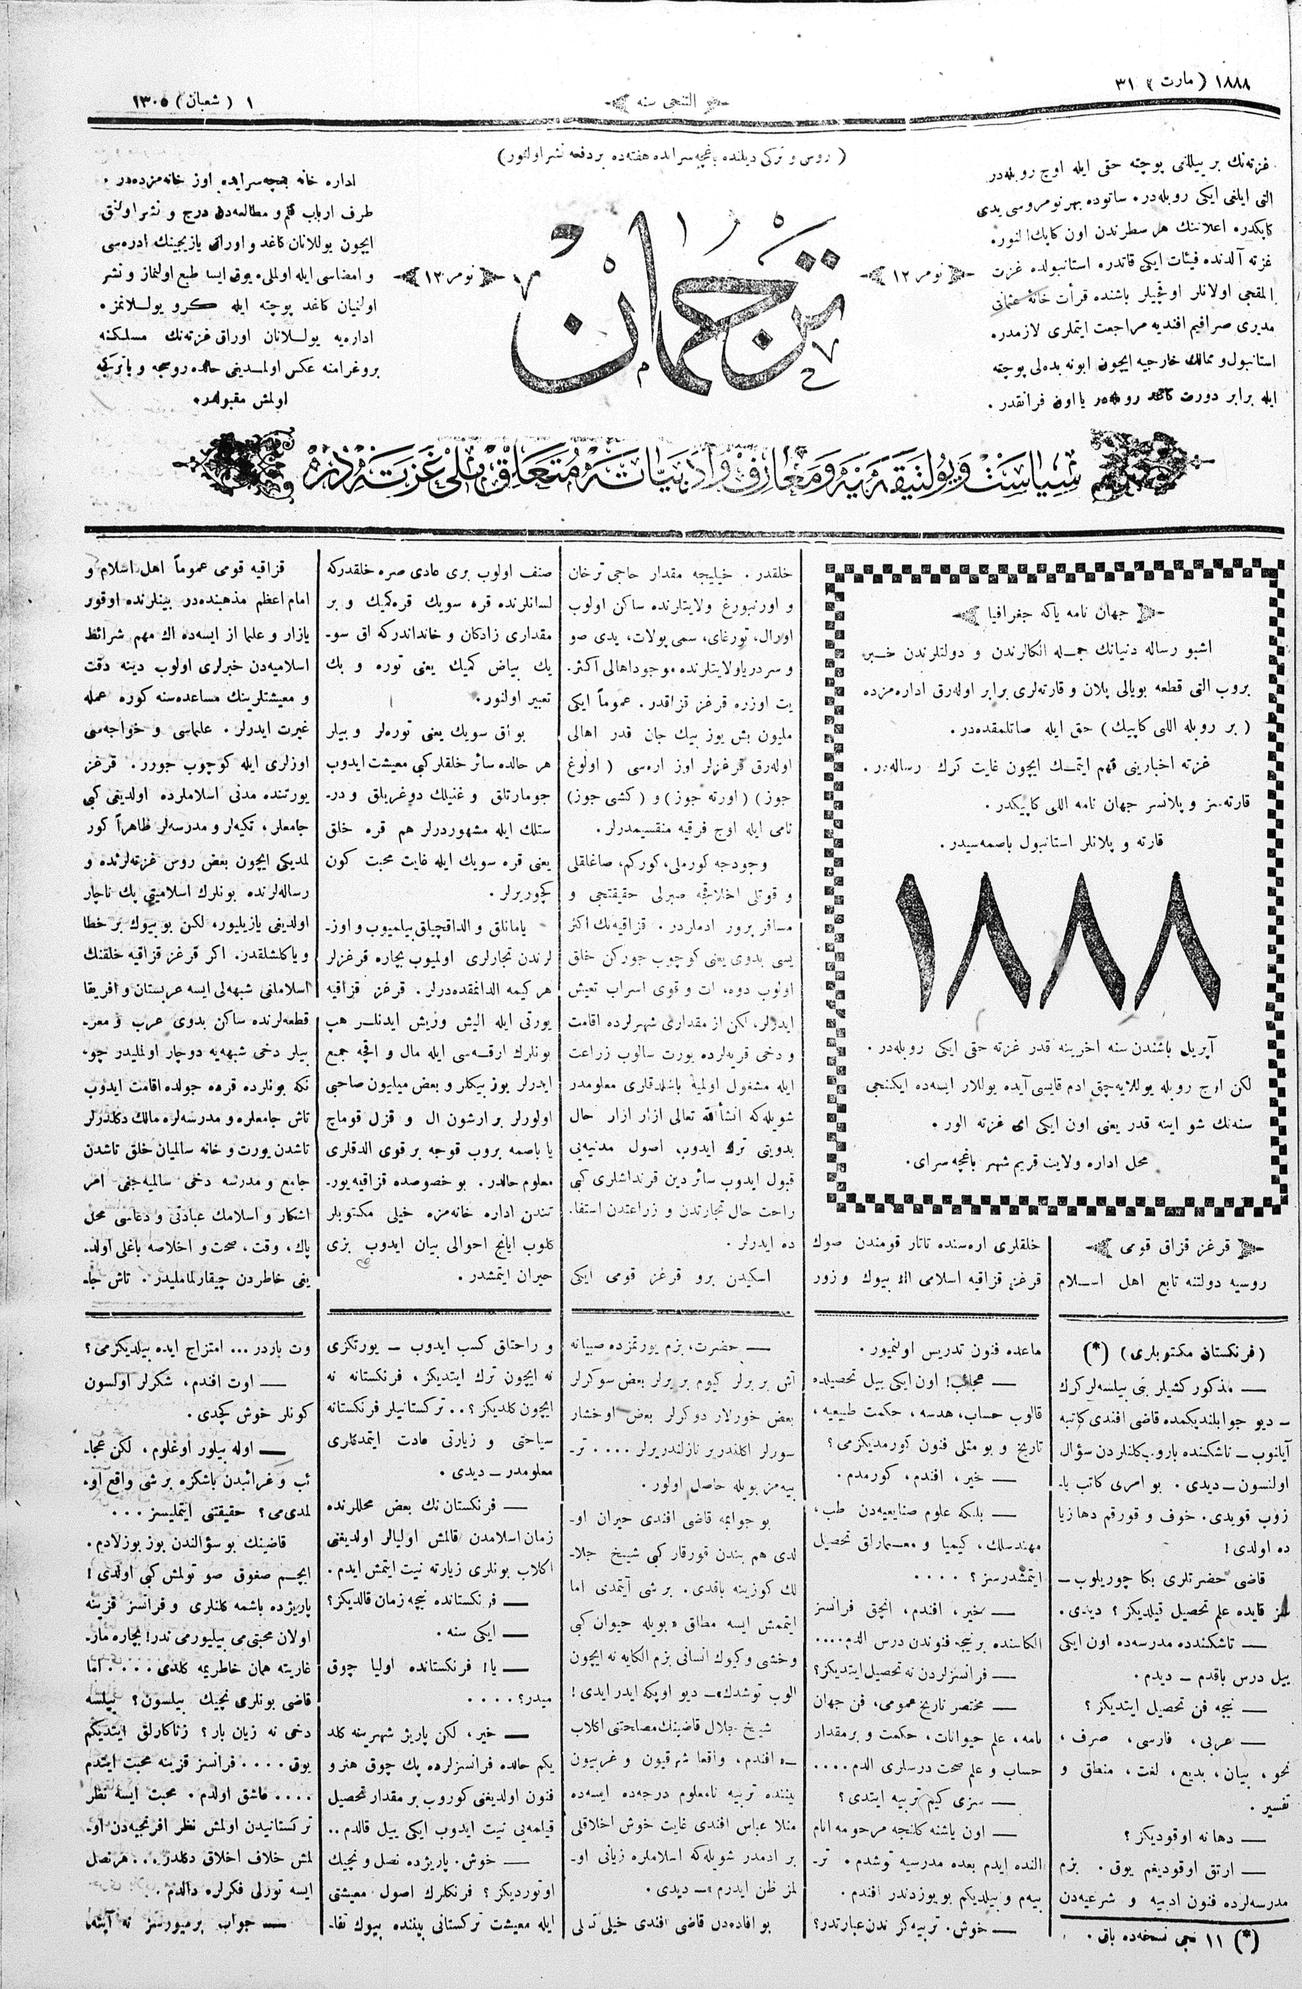 ١٨٨٨ (مارت) ٣١
التنجى سنه
١ (شعبان) ١٣٠٥
(روس و تركى ديلنده باغچه سرايده هفته ده بر دفعه نشر اولنور)
غزته نك بر ييللنى پوچته حقى ايله اوچ روبله در
التى ايلغى ايكى روبله در. ساتوده بهر نومروسى يدى
كاپكدر. اعلاننك هر سطرندن اون كاپك النور.
غزته آلدنده فيئات ايكى قاتدره استانبولده غزت
المقجى اولانلر اوقچيلر باشنده قرأت خانۀ عثمانى
مديرى صرافيم افنديه مراجعت ايتملرى لازمدر.
استانبول و ممالك خارجيه ايچون ابونه بدلى پوچته
ايله برابر دورت كاغد روبله در يا اون فرانقدر.
نومر ١٢
ترجمان
نومر ١٢
اداره خانه باغچه سرايده اوز خانه مزده در.
طرف ارباب قلم و مطالعه دن درج و نشر اولنمق
ايچون يوللانان كاغد و اوراق يازيجينك ادره سى
و امضاسى ايله اولملى. يوق ايسا طبع اولنماز و نشر
اولنيان كاغد پوچته ايله كرو يوللانمز.
اداريه يوللانان اوراق غزته نك مسلكنه
پروغرامنه عكس اولمديغى حالده روسچه و ياتركچه
اولمش مقبولدر.
سياست و پولتيقه يه و معارف و ادبياته متعلق ملى غزته در
جهان نامه ياكه جغرافيا
اشبو رساله دنيانك جمله الكالرندن و دولتلرندن خبر
بروب التى قطعه بويالى پلان و قارته لرى برابر اوله رق اداره مزده
(بر روبله اللى كاپيك) حق ايله صاتلمقده در.
غزته اخبارينى فهم ايتمك ايچون غايت كرك رساله در.
قارته سز و پلانسز جهان نامه اللى كاپيكدر.
قارته و پلانلر استانبول باصمه سيدر.
١٨٨٨
آپريل باشندن سنه اخرينه قدر غزته حقى ايكى روبله در.
لكن اوچ روبله يوللايه جق ادم قايسى آيده يوللار ايسه ده ايكنجى
سنه نك شو اينه قدر يعنى اون ايكى اى غزته الور.
محل اداره ولايت قريم شهر باغچه سراى.
قرغز قزاق قومى
روسيه دولتنه تابع اهل اسلام
خلقلرى اره سنده تاتار قومندن صوك
قرغز قزاقيه اسلامى الك بيوك و زور
خلقدر. خيليجه مقدار حاجى ترخان
و اورنبورغ ولايتلرنده ساكن اولوب
اورال، تورغاى، سمى پولات، يدى صو
و سردريا ولايتلرنده موجود اهالى اكثر.
يت اوزره قرغز قزاقدر. عموماً ايكى
مليون بش يوز بيك جان قدر اهالى
اوله رق قرغزلر اوز اره سى (اولوغ
جوز) (اورته جوز) و (كشى جوز)
نامى ايله اوچ فرقيه منقسيمدرلر.
وجودجه كورملى، كوركم، صاغلقلى
و قوتلى اخلاقچه صبرلى حقيقتجى و
مسافر پرور ادملردر. قزاقيه نك اكثر
يسى بدوى يعنى كوچوب جوركن خلق
اولوب دوه، ات و قوى اسراب تعيش
ايدرلر. لكن از مقدارى شهرلرده اقامت
و دخى قريه لرده يورت سالوب زراعت
ايله مشغول اولميه باشلدقلرى معلومدر
شويله كه انشأالله تعالى ازار ازار حال
بدويتى ترك ايدوب، اصول مدنيه يى
قبول ايدوب سائر دين قرنداشلرى كبى
راحت حال تجارتدن و زراعتدن استفا.
ده ايدرلر.
اسكيدن برو قرغز قومى ايكى
صنف اولوب برى عادى صره خلقدركه
لسانلرنده قره سويك قره كميك و بر
مقدارى زادكان و خانداندركه اق سو-
يك بياض كميك يعنى توره و بك
تعبير اولنور.
بو اق سويك يعنى توره لر و بيلر
هر حالده سائر خلقلر كبى معيشت ايدوب
جومارتلق و غنيلك دوغريلق و در-
ستلك ايله مشهوردرلر هم قره خلق
يعنى قره سويك ايله غايت محبت كون
كچوررلر.
يامانلق و الداقچيلق بيلميوب و اوز-
لرندن تجارلرى اولميوب بچاره قرغزلر
هر كيمه الدانمقده درلر. قرغز قزاقيه
يورتى ايله اليش ويزيش ايدنلر هپ
بونلرك ارقه سى ايله مال و اقچه جمع
ايدرلر يوز بيكلر و بعض ميليون صاحبى
اولورلر بر ارشون ال و قزل قوماچ
يا باصمه بروب قوجه بر قوى الدقلرى
معلوم حالدر. بو خصوصده قزاقيه يور-
تندن اداره خانه مزه خيلى مكتوبلر
كلوب ايانچ احوالى بيان ايدوب بزى
حيران ايتمشدر.
قزاقيه قومى عموماً اهل اسلام و
امام اعظم مذهبنده در بينلرنده اوقور
يازار و علما از ايسه ده اك مهم شرائط
اسلاميه دن خبرلرى اولوب دينه دقت
و معيشتلرينك مساعده سنه كوره عمله
غيرت ايدرلر. علماسى و خواجه سى
اوزلرى ايله كوچوب جورر. قرغز
يورتنده مدنى اسلاملرده اولديغى كبى
جامعلر، تكيه لر و مدرسه لر ظاهراً كور
لمديكى ايچون بعض روس غزته لرنده و
رساله لرنده بونلرك اسلاميتى پك ناچار
اولديغى يازيليوره لكن بو بيوك بر خطا
و ياكلشلقدر. اكر قرغز قزاقيه خلقنك
اسلاملغى شبهه لى ايسه عربستان و افريقا
قطعه لرنده ساكن بدوى عرب و مغر-
بيلر دخى شبهه يه دوچار اولمليدر چو-
نكه بونلرده قرده جولده اقامت ايدوب
تاش جامعلره و مدرسه لره مالك دكلدرلر
تاشدن يورت و خانه سالميان خلق تاشدن
جامع و مدرسه دخى سالميه جغى امر
اشكار و اسلامك عبادتى و دعاسى محل
پاك، وقت، صحت و اخلاصه باغلى اولد.
يغى خاطردن چيقارلمامليدر. تاش جا-
(فرنكستان مكتوبلرى) (*)
— مذكور كشيلر بنى بيلسه لر كرك
- ديو جوابلنديكمده قاضى افندى كاتبه
آيلنوب - تاشكنده بارو-ب كلنلردن سؤال
اولنسون - ديدى. بو امرى كاتب يا-
زوب قويدى. خوف و قورقم دها زيا
ده اولدى!
قاضى حضرتلرى بكا چوريلوب -
سز قايده علم تحصيل قيلديكز؟ ديدى.
— تاشكندده مدرسه ده اون ايكى
ييل درس باقدم - ديدم.
— نيجه فن تحصيل ايتديكز؟
— عربى، فارسى، صرف،
نحو، بيان، بديع، لغت، منطق و
تفسير.
— دها نه اوقوديكز؟
— ارتق اوقوديغم يوق. بزم
مدرسه لرده فنون ادبيه و شرعيه دن
(*) ١١ نجى نسخه ده باق.
ماعده فنون تدريس اولنميور.
— عجائب! اون ايكى ييل تحصيلده
قالوب حساب، هندسه، حكمت طبيعيه،
تاريخ و بو مثلى فنون كورمديكزمى؟
— خير، افندم، كورمدم.
— بلكه علوم صنايعيه دن طب،
مهندسلك، كيميا و معمارلق تحصيل
ايتمشدرسز؟ ....
— خير، افندم، انجق فرانسز
الكاسنده بر نيجه فنوندن درس الدم....
— فرانسزلردن نه تحصيل ايتديكز؟
— مختصر تاريخ عمومى، فن جهان
نامه، علم حيوانات، حكمت و بر مقدار
حساب و علم صحت درسلرى الدم....
— سزى كيم تربيه ايتدى؟
— اون ياشنه كلنجه مرحومه انام
النده ايدم بعده مدرسيه توشدم. تر-
بيه م و بيلديكم بو يوزدندر افندم.
— خوش. تربيه كز ندن عبارتدر؟
— حضرت، بزم يورتمزده صبيانه
آش بررلر كيوم بررلر بعض سوكرلر
بعض خورلار دوكرلر بعض اوخشار
سورلر اكلندرر نازلندريرلر .... تر-
بيه مز بويله حاصل اولور.
بو جوابمه قاضى افندى حيران او-
لدى هم بندن قورقار كبى شيخ جلا-
لك كوزينه باقدى. بر شى آيتمدى اما
ايتممش ايسه مطلق «بويله حيوان كبى
وحشى و كيوك انسانى بزم الكايه نه ايچون
الوب توشدك»- ديو اويكه ايدر ايدى!
شيخ جلال قاضينك مصاحتنى اكلاب
- ه افندم، واقعا شرقيون و غربيون
بيننده تربيه نامعلوم درجه ده ايسه ده
منلا عباس افندى غايت خوش اخلاقلى
بر ادمدر شويله كه اسلاملره زيانى او-
لمز ظن ايدرم»- ديدى.
بو افاده دن قاضى افندى خيلى تسلى
و راحتلق كسب ايدوب - يورتكزى
نه ايچون ترك ايتديكز، فرنكستانه نه
ايچون كلديكز؟.. تركستانيلر فرنكستانه
سياحتى و زيارتى عادت ايتمدكلرى
معلومدر - ديدى.
— فرنكستان نك بعض محللرنده
زمان اسلامدن قالمش اوليالر اولديغنى
اكلاب بونلرى زيارته نيت ايتمش ايدم.
— فرنكستانده نيچه زمان قالديكز؟
— ايكى سنه.
— يا! فرنكستانده اوليا چوق
ميدر؟ ....
— خير، لكن پاريز شهرينه كلد
يكم حالده فرانسزلرده پك چوق هنر و
فنون اولديغنى كوروب بر مقدار تحصيل
قيلمه يى نيت ايدوب ايكى ييل قالدم..
— خوش. پاريزده نصل و نچيك
اوتورديكز؟ فرنكلرك اصول معيشتى
ايله معيشت تركستانى بيننده بيوك تفا-
وت باردر ... امتزاج ايده بيلديكزمى؟
— اوت افندم، شكرلر اولسون
كونلر خوش كچدى.
— اوله بيلور اوغلوم، لكن عجا-
ئب و غرائبدن باشكزه بر شى واقع آو-
لمدى مى؟ حقيقتنى ايتمليسز ...
قاضينك بو سؤالندن بوز بوزلادم.
ايچم صغوق صو تولمش كبى اولدى!
پاريزده باشمه كلنلرى و فرانسز قزينه
اولان محبتى مى بيليورمى ندر! بچاره مار-
غاريته همان خاطريمه كلدى.... اما
قاضى بونلرى نچيك بيلسون؟ بيلسه
دخى نه زيان بار؟ زناكارلق ايتديكم
يوق.... فرانسز قزينه محبت ايتدم
.... عاشق اولدم. محبت ايسه نظر
تركستانيدن اولمش نظر افرنجيه دن او-
لمش خلاف اخلاق دكلدر... هر نصل
ايسه تورلى فكرلره دالدم.
— جواب برميورسز نه آپتشه